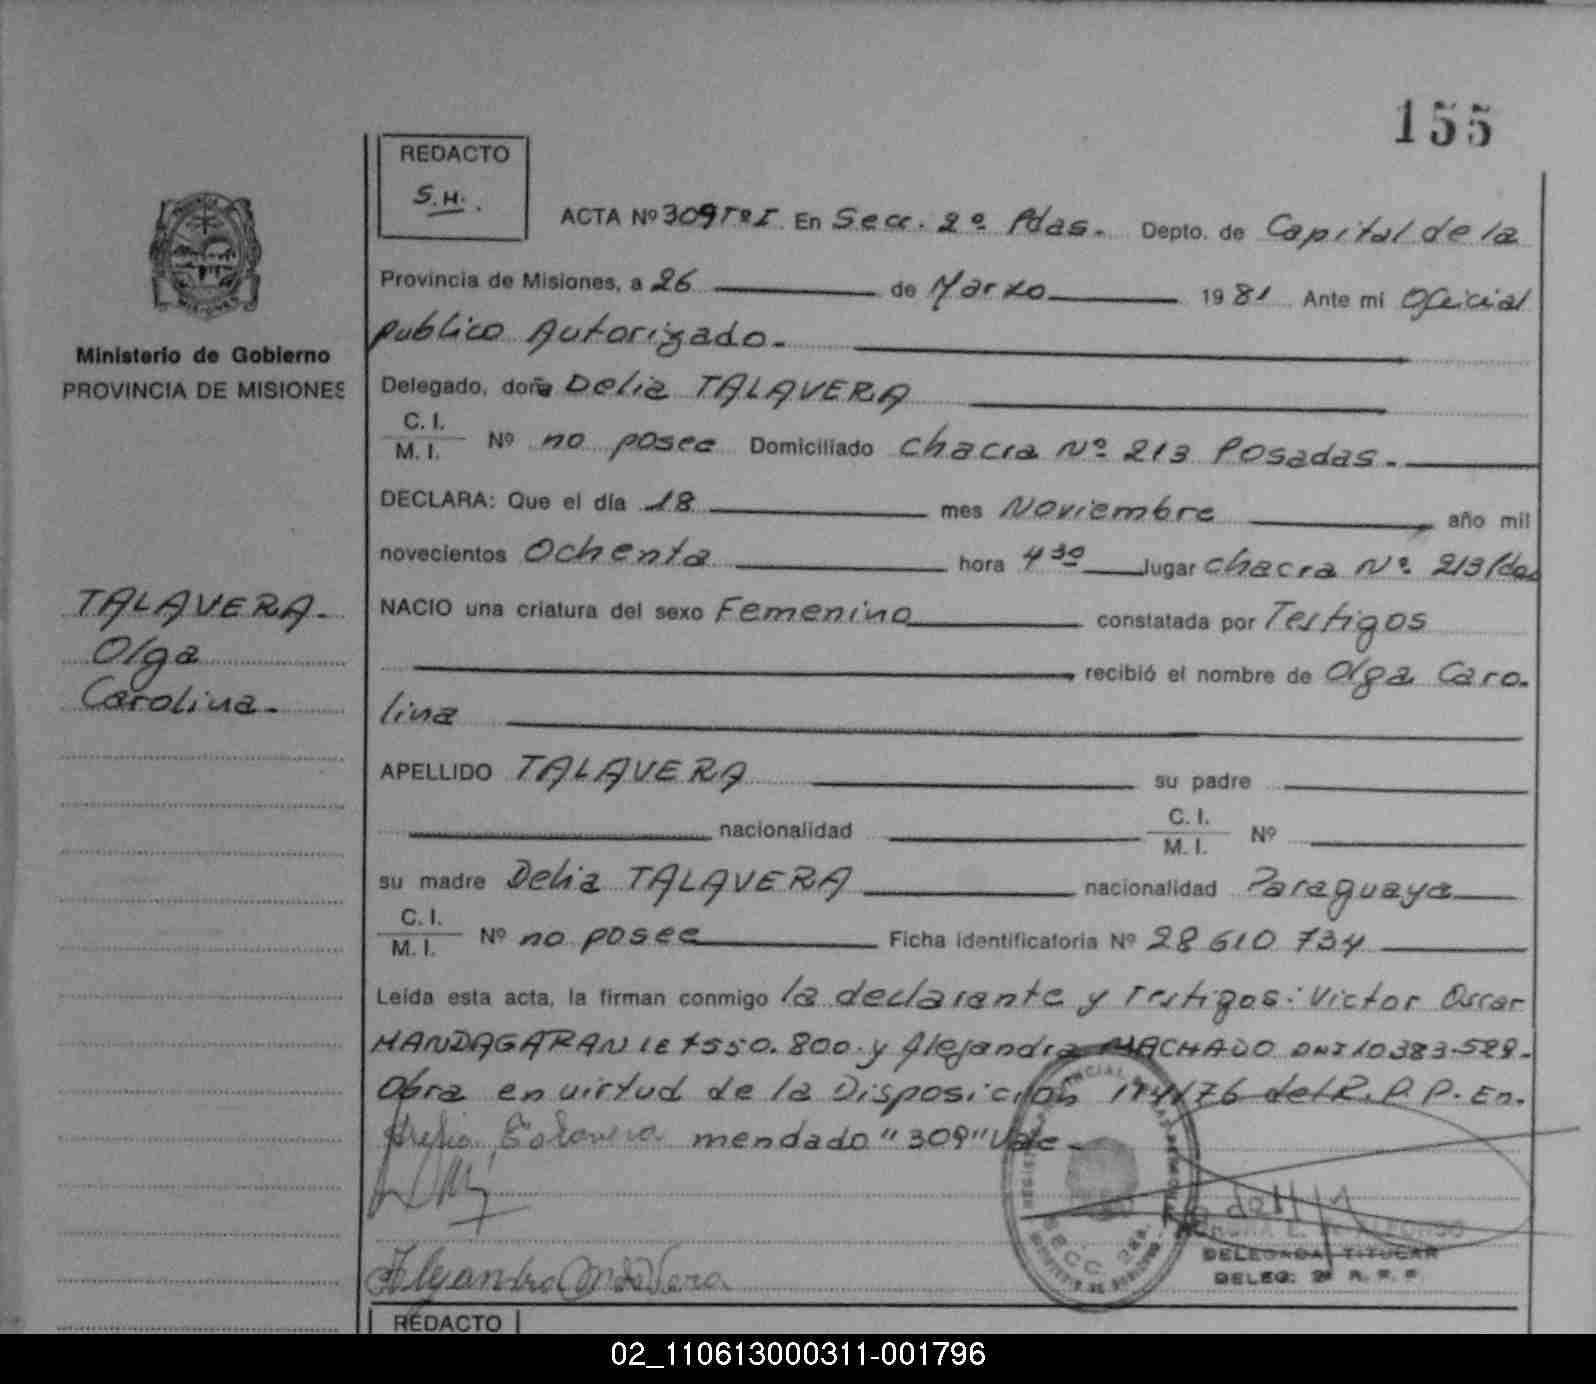 155
REDACTO
S.H.
ACTA Nº 309 TºI. En Secc. 2º Pdas. Depto. de Capital de la
Provincia de Misiones, a 26 de Marzo 1981 Ante mi Oficial
publico Autorizado.
Ministerio de Gobierno
PROVINCIA DE MISIONES
Delegado, doña Delia TALAVERA
C. I.
M. I. Nº no posee Domiciliado chacra Nº 213 Posadas.
DECLARA: Que el día 18 mes Noviembre año mil
novecientos Ochenta hora 4 30 lugar chacra Nº 213 Pdas
TALAVERA.
Olga
Carolina.
NACIO una criatura del sexo Femenino constatada por Testigos
recibió el nombre de Olga Caro-
lina
APELLIDO TALAVERA su padre
nacionalidad C. I.
M. I. Nº
su madre Delia TALAVERA nacionalidad Paraguaya
C. I.
M. I. Nº no posee Ficha identificatoria Nº 28 610 734
Leída esta acta, la firman conmigo la declarante y Testigos: Victor Oscar
MANDAGARAN LE 7550.800 y Alejandra MACHADO DNI 10383.529.
Obra en virtud de la Disposición 174/76 del R.P.P. En.
mendado "309" Vale
SECC. 2da.
DELEGADA TITULAR
DELEG: 2ª R. P. P.
REDACTO
02_110613000311-001796